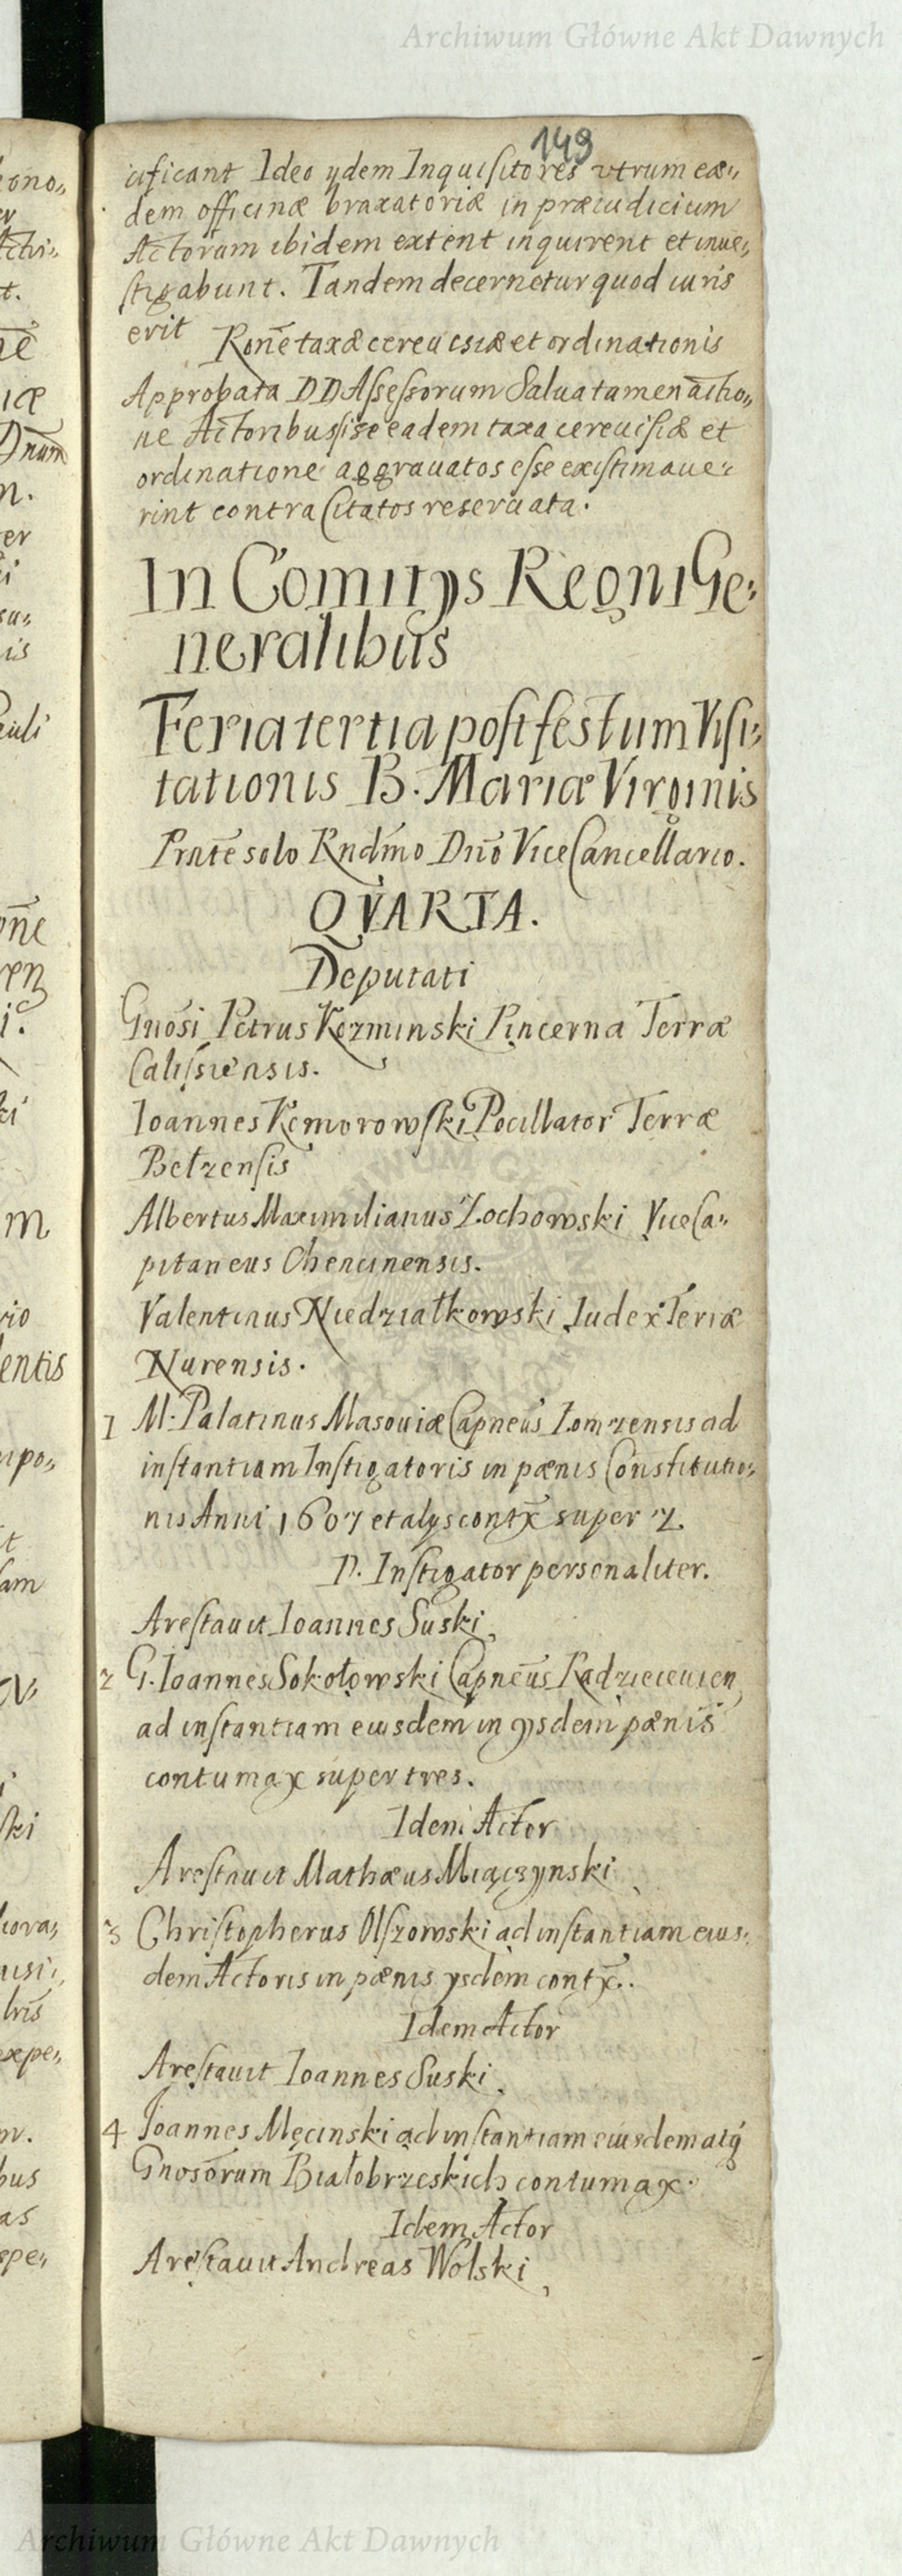 Archiwum Główne Akt Dawnych
149
cificant Ideo ydem Inquisitores vtrum eæ„
dem officinæ braxatoriæ in præiudicium
Actorum ibidem extent inquirent et inue„
stigabunt. Tandem decernetur quod iuris
erit Ronē taxæ cereuisiæ et ordinationis
Approbata DD Assessorum Salua tamen actio„
ne Actoribus si se eadem taxa cereuisiæ et
ordinatione aggrauatos esse existimaue„
rint contra Citatos reseruata.
In Comitijs Regni Ge„
neralibus
Feria tertia post festum Visi„
tationis B. Mariæ Virginis
Prnte solo Rndmo Dno Vice Cancellario.
QVARTA.
Deputati
Gnosi Petrus Kozminski Pincerna Terræ
Calissiensis.
Ioannes Komorowski Pocillator Terræ
Bełzensis
Albertus Maximilianus Żochowski ViceCa„
pitaneus Chencinensis.
Valentinus Niedziałkowski Iudex Terræ
Nurensis.
1 M. Palatinus Masouiæ Capneus Łomzensis ad
instantiam Instigatoris in pænis Constitutio„
nis Anni 1607 et alys contx super 2.
P. Instigator personaliter.
Arestauit Ioannes Suski
2 G. Ioannes Sokołowski Capneus Radzieiouien
ad instantiam eiusdem in ysdem pænis
contumax super tres.
Idem Actor
Arestauit Mathæus Miączynski
3 Christopherus Olszowski ad instantiam eius„
dem Actoris in pænis ysdem contx.
Idem Actor
Arestauit Ioannes Suski
4 Ioannes Męcinski ad instantiam eiusdem atq
Gnosorum Białobrzeskich contumax.
Idem Actor
Arestauit Andreas Wolski
Archiwum Główne Akt Dawnych